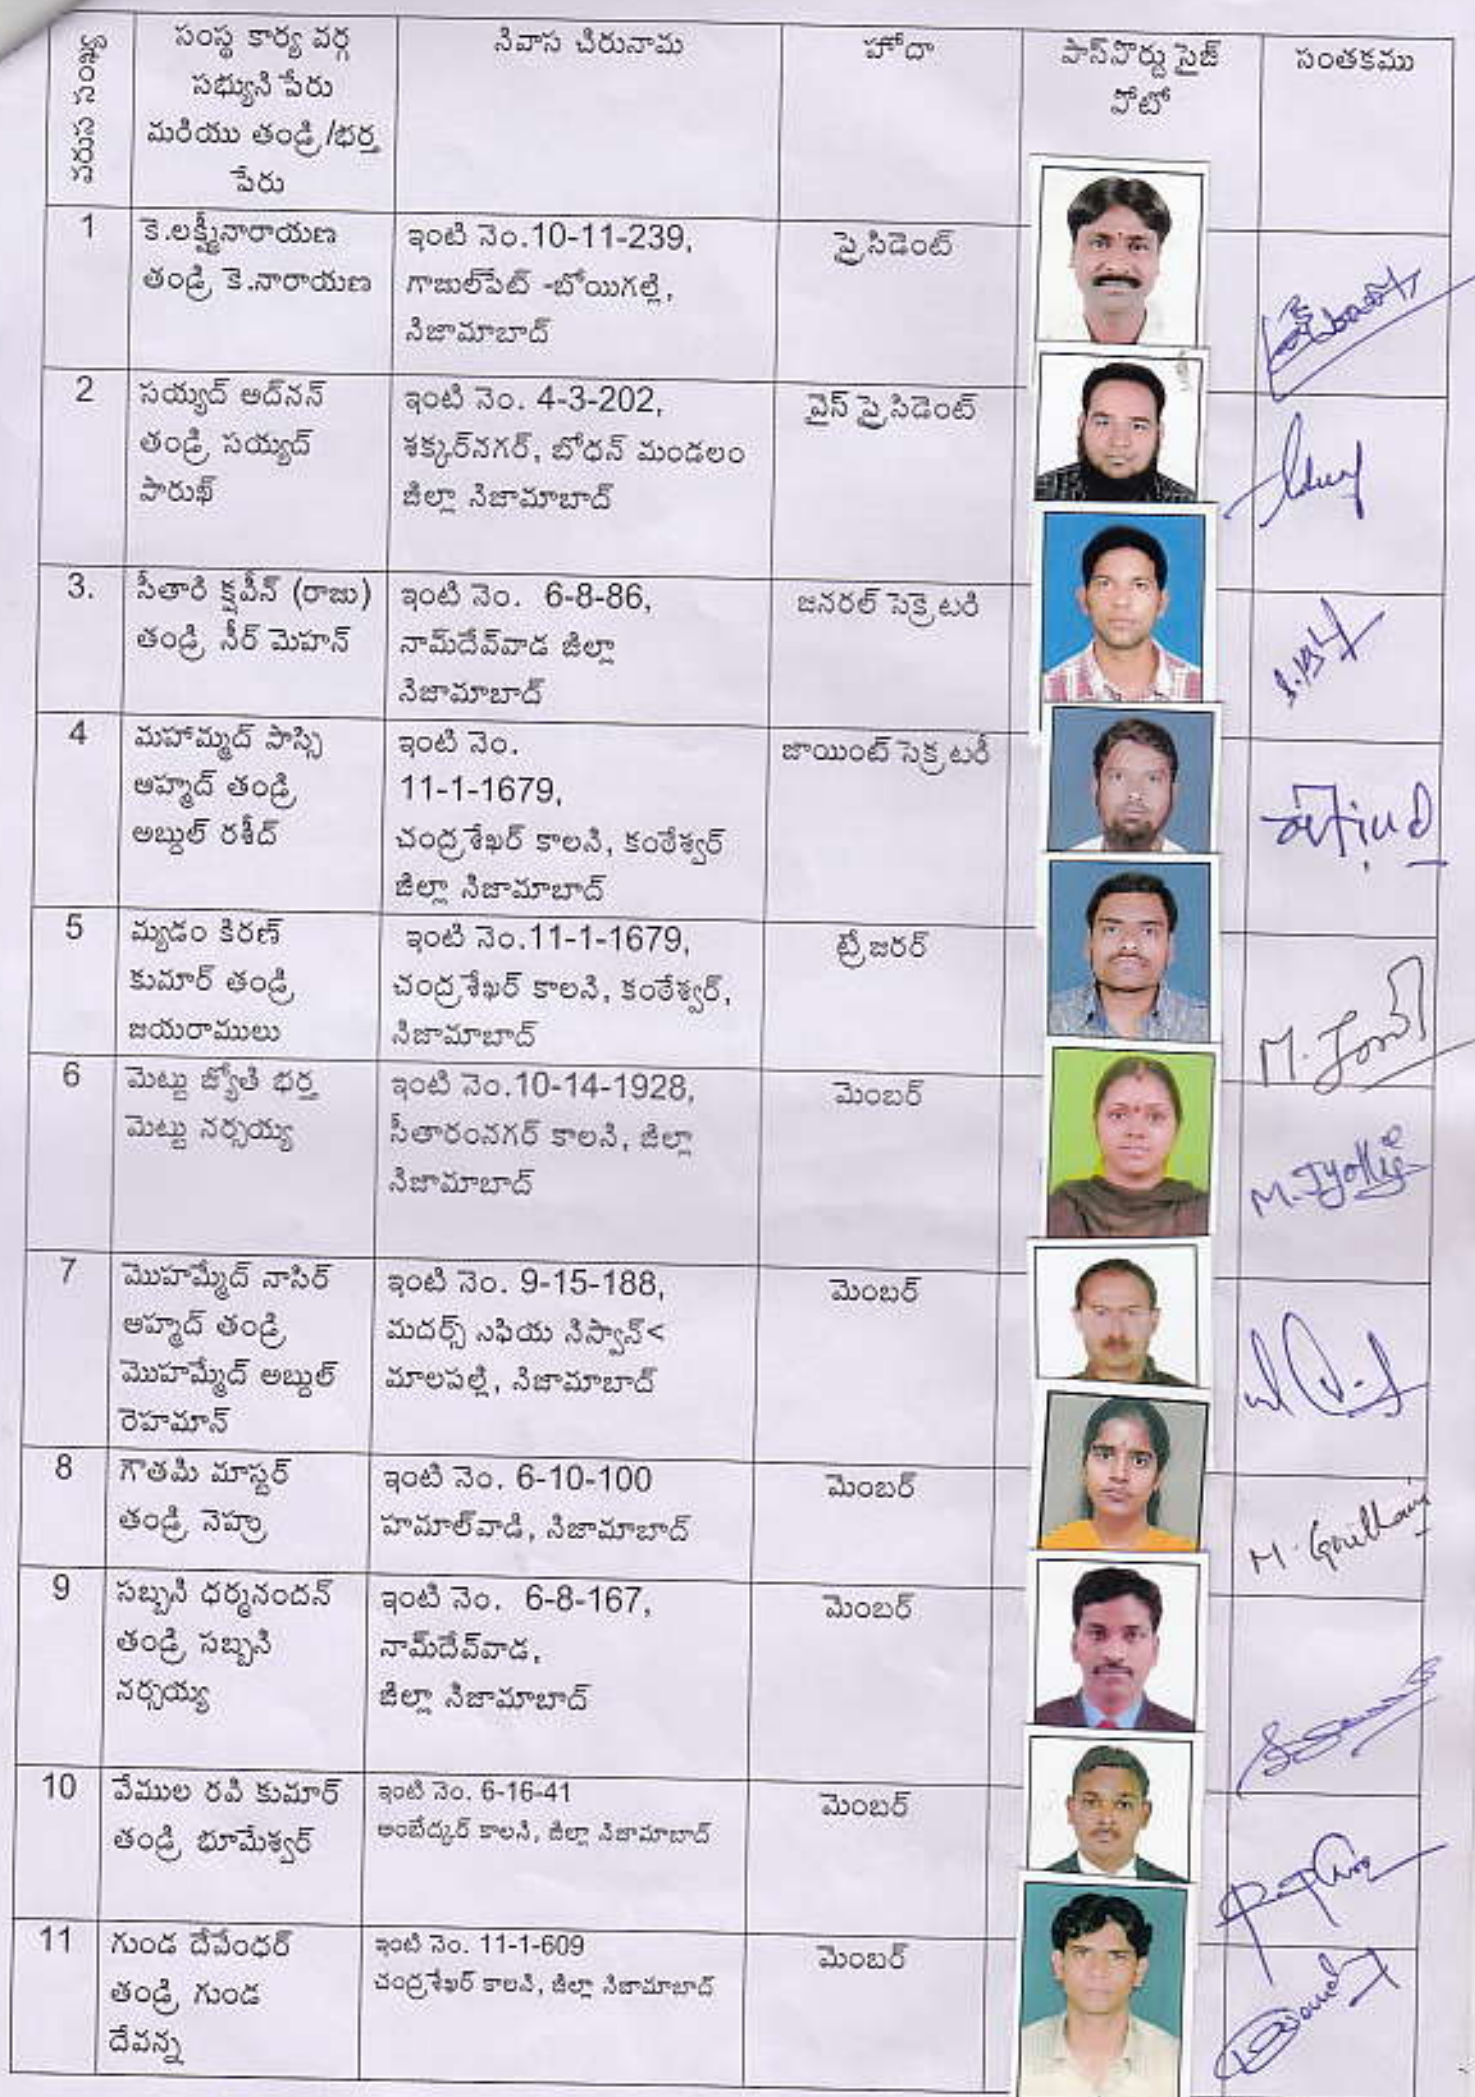 వరుస సంఖ్య
సంస్థ కార్య వర్గ
సభ్యుని పేరు
మరియు తండ్రి/భర్త
పేరు
నివాస చిరునామ
హోదా
పాస్‌పొర్టు సైజ్
పోటో
సంతకము
1
కె.లక్ష్మీనారాయణ
తండ్రి కె.నారాయణ
ఇంటి నెం.10-11-239,
గాజుల్‌పేట్ -బోయిగల్లి,
నిజామాబాద్
ప్రెసిడెంట్
2
సయ్యద్ అద్‌నన్
తండ్రి సయ్యద్
పారుఖ్
ఇంటి నెం. 4-3-202,
శక్కర్‌నగర్, బోధన్ మండలం
జిల్లా నిజామాబాద్
వైస్ ప్రెసిడెంట్
3.
సీతారి క్షవీన్ (రాజు)
తండ్రి నీర్ మెహన్
ఇంటి నెం. 6-8-86,
నామ్‌దేవ్‌వాడ జిల్లా
నిజామాబాద్
జనరల్ సెక్రెటరి
4
మహామ్మద్ పాస్సి
అహ్మద్ తండ్రి
అబ్దుల్ రశీద్
ఇంటి నెం.
11-1-1679,
చంద్రశేఖర్ కాలని, కంఠేశ్వర్
జిల్లా నిజామాబాద్
జాయింట్ సెక్రటరీ
5
మ్యడం కిరణ్
కుమార్ తండ్రి
జయరాములు
ఇంటి నెం.11-1-1679,
చంద్రశేఖర్ కాలని, కంఠేశ్వర్,
నిజామాబాద్
ట్రేజరర్
6
మెట్టు జ్యోతి భర్త
మెట్టు నర్సయ్య
ఇంటి నెం.10-14-1928,
సీతారంనగర్ కాలని, జిల్లా
నిజామాబాద్
మెంబర్
M. Jyothi
7
మొహమ్మేద్ నాసిర్
అహ్మద్ తండ్రి
మొహమ్మేద్ అబ్దుల్
రెహమాన్
ఇంటి నెం. 9-15-188,
మదర్స్ సఫియ నిస్వాన్<
మాలపల్లి, నిజామాబాద్
మెంబర్
8
గౌతమి మాస్టర్
తండ్రి నెహ్రు
ఇంటి నెం. 6-10-100
హమాల్‌వాడి, నిజామాబాద్
మెంబర్
M. Gouthami
9
సబ్బని ధర్మనందన్
తండ్రి సబ్బని
నర్సయ్య
ఇంటి నెం. 6-8-167,
నామ్‌దేవ్‌వాడ,
జిల్లా నిజామాబాద్
మెంబర్
10
వేముల రవి కుమార్
తండ్రి భూమేశ్వర్
ఇంటి నెం. 6-16-41
అంబేద్కర్ కాలని, జిల్లా నిజామాబాద్
మెంబర్
11
గుండ దేవేంధర్
తండ్రి గుండ
దేవన్న
ఇంటి నెం. 11-1-609
చంద్రశేఖర్ కాలని, జిల్లా నిజామాబాద్
మెంబర్